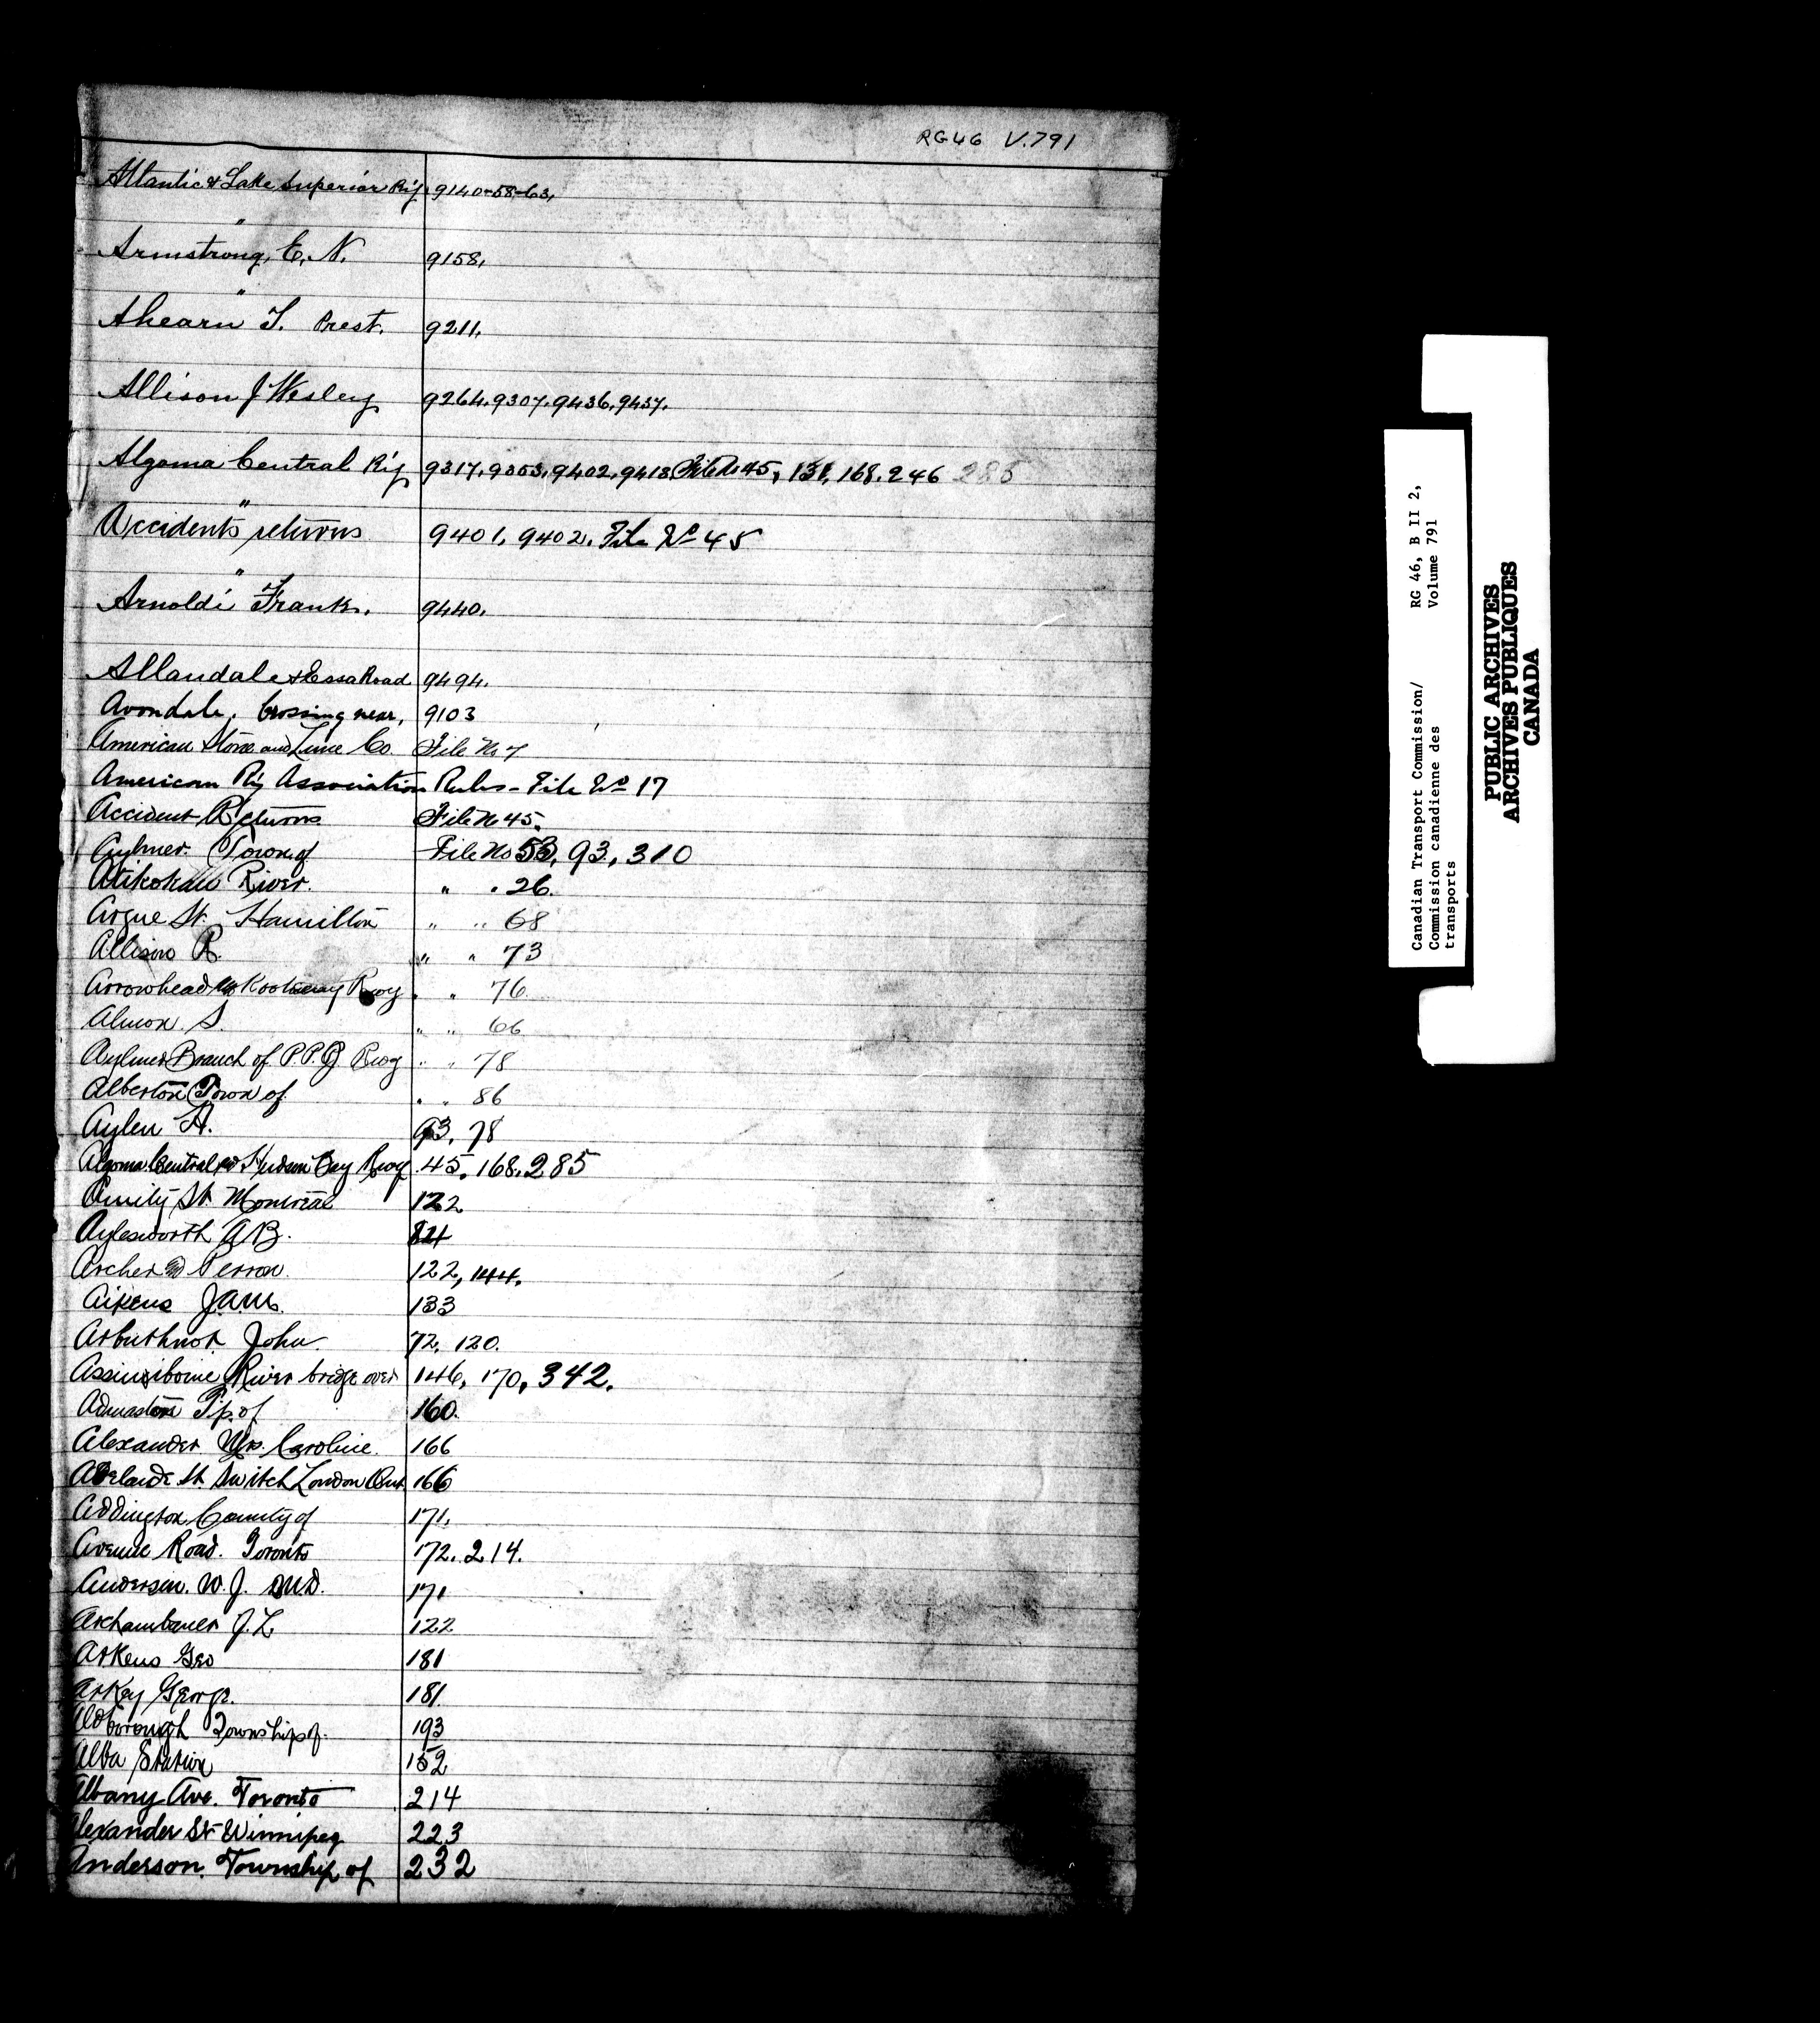 RG46 V.791
Atlantic & Lake Superior Ry. 9140-58-63,
"
Armstrong, E. N. 9158,
"
Ahearn T. Prest. 9211.
Allison J Wesley 9264, 9307, 9436, 9437.
Algoma Central Ry 9317, 9353, 9402, 9418 File No 45, 131, 168. 246 285
"
Accidents returns 9401, 9402. File No 45
"
Arnoldi Frank. 9440.
Allandale & Essa Road 9494.
Avondale, Crossing near, 9103
American Stone and Lime Co. File No 7
American Ry Association Rules - File No 17
Accident Returns File No 45.
Aylmer. Town of File No 53, 93, 310
Atikokan River. " " 26.
Argue St. Hamilton " " 68
Allison R. " " 73
Arrowhead & Kootenay Rwy " " 76
Almon S. " " 66
Aylmer Branch of P.P.J Rwy " " 78
Alberton Town of " " 86
Aylen H. 93, 78
Algoma Central & Hudson Bay Rwy 45, 168. 285
Amity St. Montreal 122
Aylesworth A B. 84
Archer & Perron. 122, 144.
Aikens J.A.M. 133
Arbuthnot John. 72, 120.
Assiniboine River bridge over 146, 170, 342.
Admaston Tp. of 160.
Alexander Mrs. Caroline. 166
Adelaide St. Switch London Ont 166
Addington County of 171.
Avenue Road. Toronto 172. 214.
Anderson. W. J. M.D. 171
Archambault J. L. 122
Arkens Geo 181
Arkey George. 181
Aldborough Township of. 193
Alba Station 152
Albany Ave. Toronto 214
Alexander St Winnipeg 223
Anderson. Township of 232
Canadian Transport Commission/ RG 46, B II 2,
Commission canadienne des Volume 791
transports
PUBLIC ARCHIVES
ARCHIVES PUBLIQUES
CANADA